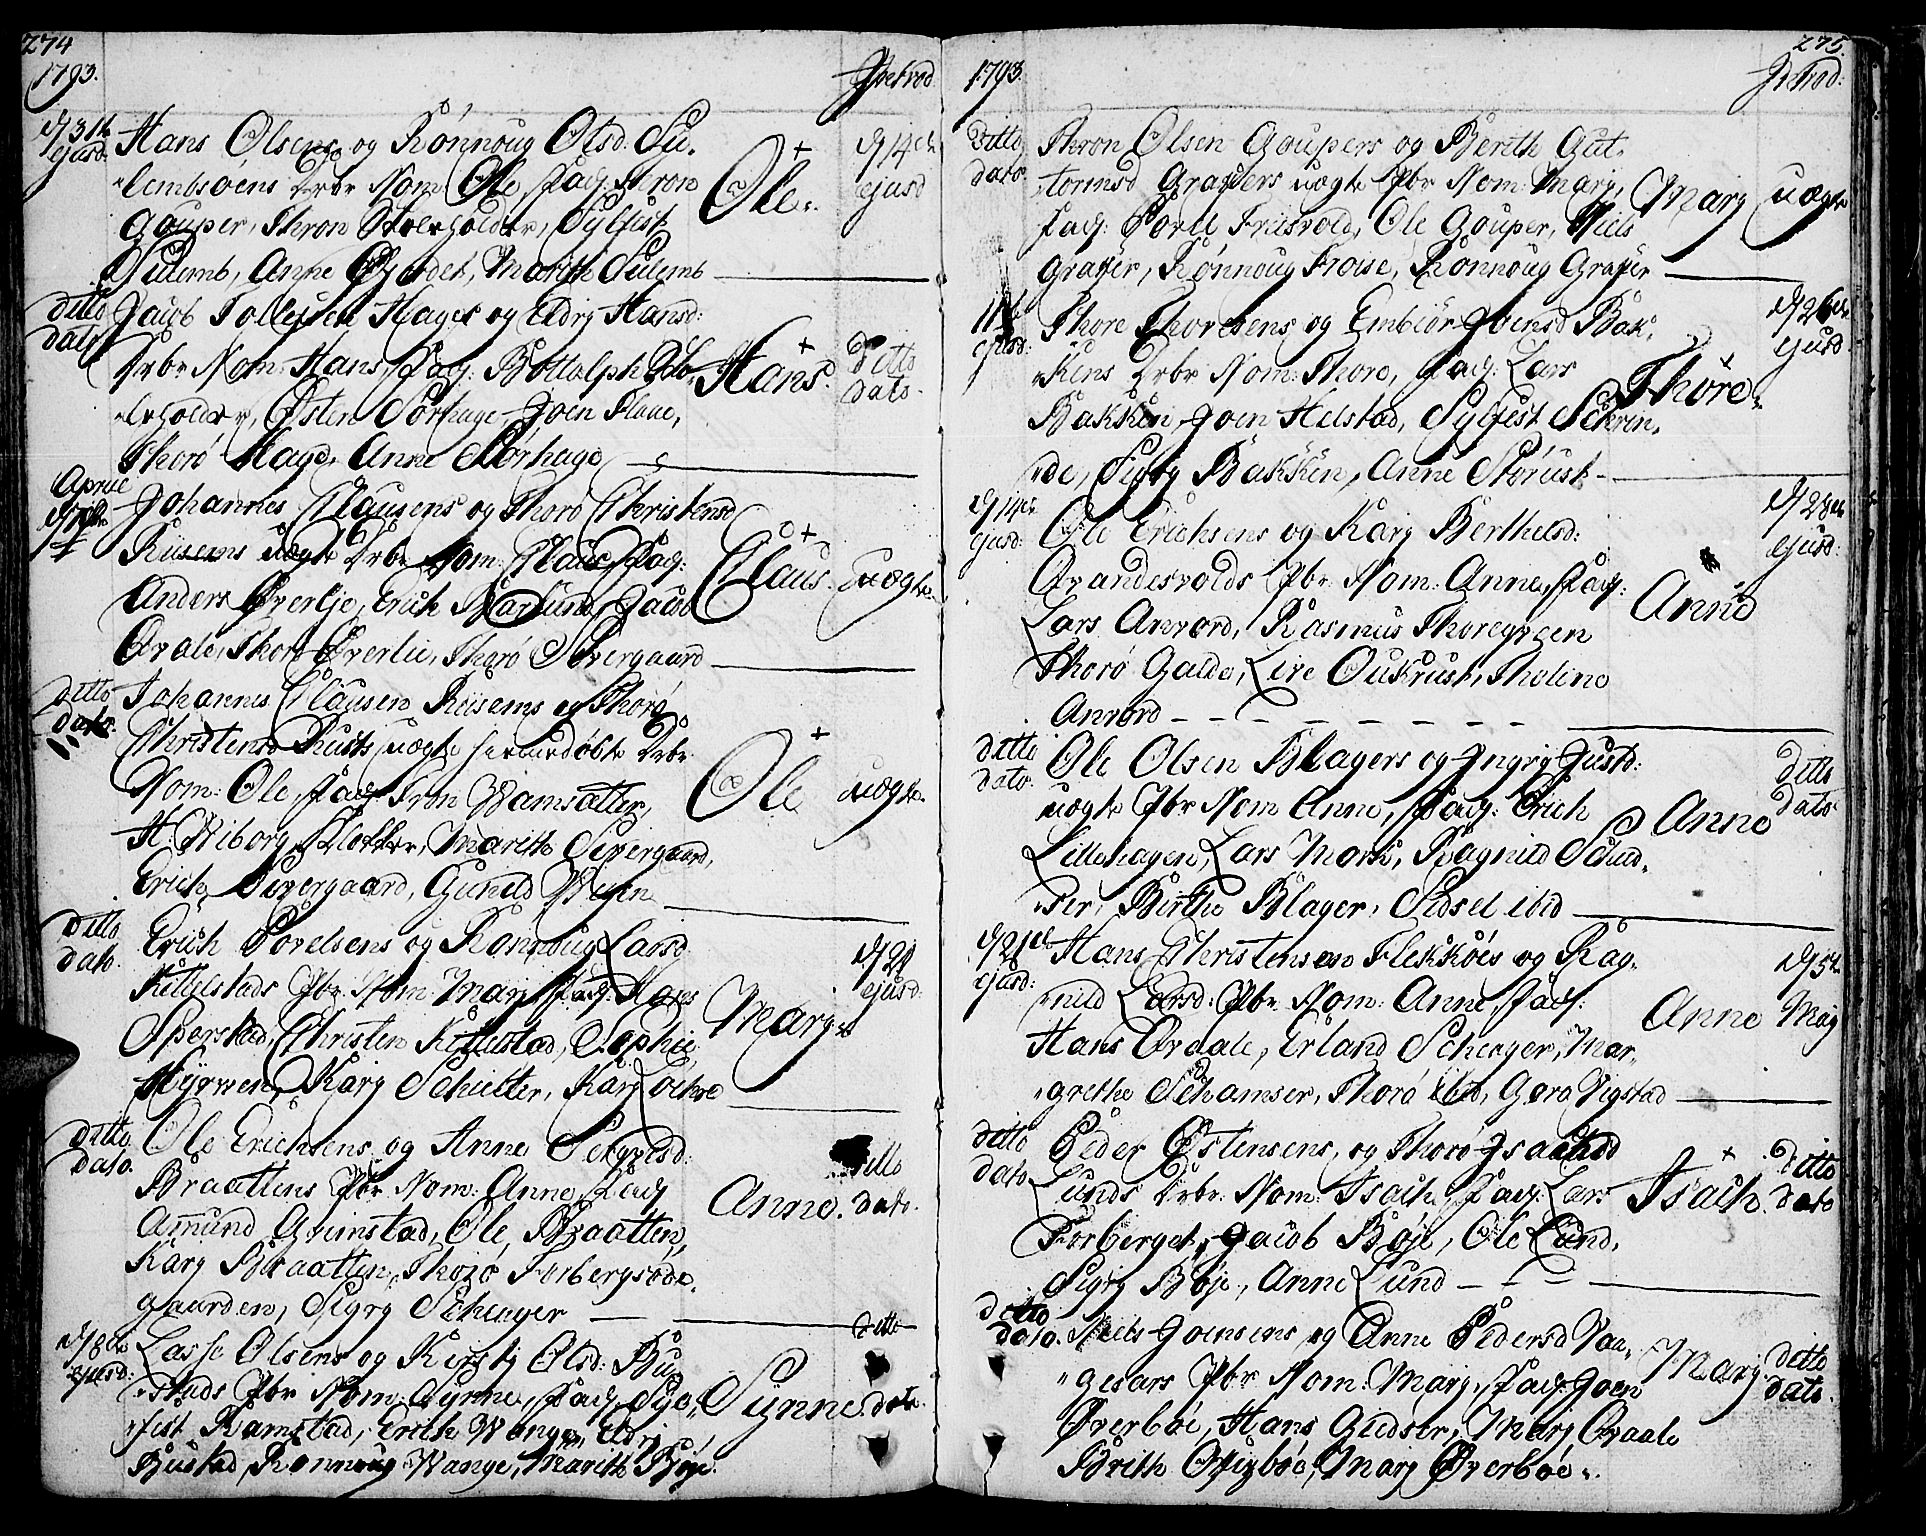 274
1793.
Introd.
d 31te
ejusd:
Hans Olsens og Rønnoug Olsd. Su-
lembsøens Drbr Nom: Ole, Fad: Thron
Gouper, Thron Stolerholder, Sylfest
Sulemb, Anne Øygardet, Marith Sulemb
Ole.
d 14de
ejusd
ditto
dato
Jacob Tollefsen Hages og Eldry Hansd:
Drbr Nom: Hans, Fad: Bottolph
erholder, Østen Sørhage, Joen Flaae,
Thorø Hage, Anne Sørhage
Hans.
Ditto
dato.
Aprill
d 7de
Johannes Clausens og Thorø Christensd
Riisems uægte Drbr Nom: Claus, Fad:
Anders Øverlie, Erich Nørlund, Jacob
Qvale, Thorø Øverlie, Thorø Svergaard
Claus.
uægte.
ditto
dato.
Johannes Clausen Riisems og Thorø
Christensd Rusts uægte hiemedøbte Drbr
Nom: Ole, Fad: Tron Wamsætter,
H. Wiborg, Klokker, Marith Svergaard,
Erich Svergaard, Gunild Weyen
Ole
uægte.
ditto
dato.
Erich Povelsens og Rønnoug Larsd
Kittelstads Pbr Nom: Marj, Fad: Hans
Sperstad, Christen Kittelstad, Sophie
Hyrwen, Karj Schietter, Karj Løkre
Marj
d 21
ejusd:
ditto
dato.
Ole Erichsens og Anne Sergvesd:
Braattens Pbr Nom: Anne, Fad:
Amund Grimstad, Ole Braatten,
Karj Braatten, Thorø Forbergsøde-
gaarden, Sigrj Scheager
Anne.
ditto
dato.
d 8de
ejusd:
Lasse Olsens og Kirstj Olsd: Bu-
stads Pbr Nom: Synne, Fad: Syl-
fest Ramstad, Erich Wange, Eldrj
Bustad, Rønnoug Wange, Marith Bøje.
Synne.
ditto
dato.
275.
1793.
Introd:
Ditto
dato
Thron Olsen Goupers og Berith Gut-
tormsd Graffers uægte Pbr Nom: Marj,
Fad: Povel Friisvold, Ole Gouper, Niels
Graffer, Rønnoug Froise, Rønnoug Graffer
Marj
uægte
11te
ejusd:
Thore Thoresens og Embiør Joensd Bak-
kens Drbr Nom: Thore, Fad: Lars
Bakken, Joen Helstad, Sylfest Schrin-
de, Sigrj Bakken, Anne Størust
Thore.
d 26de
ejusd.
d 14de
ejusd:
Ole Erichsens og Karj Berthelsd:
Qvandesvolds Pbr Nom: Anne, Fad:
Lars Anvord, Rasmus Thoregreen
Thorø Galde, Live Oukrust, Tholine
Anvord
Anne
d 28de
ejusd:
ditto
dato.
Ole Olsen Blagers og Ingrj Justd:
uægte Pbr Nom Anne, Fad: Erich
Lillehagen, Lars Mork, Ragnild Sand-
ner, Birthe Blager, Sidsel ibid
Anne
Ditto
dato.
d 21de
ejusd:
Hans Christensen Flekkøies og Rag-
nild Larsd: Pbr Nom: Anne, Fad:
Hans Qvdale, Erland Scheager, Mar-
grethe Schamser, Thorø ibid, Gora Vigstad
Anne
d 5te
Maj
ditto
dato.
Peder Østensens, og Thorø Isachsd
Lunds Drbr: Nom: Isach, Fad: Lars
Forberget, Jacob Bøje, Ole Lund,
Sigrj Bøje, Anne Lund
Isach.
Ditto
dato
ditto
dato.
Niels Joensens og Anne Pedersd Vaa-
gesars Pbr Nom: Marj, Fad: Joen
Øverbøe, Hans Gledser, Marj Qvaale
Brith Opigbøe, Marj Øverbøe.
Marj.
ditto
dato.